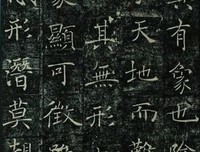 其有象也陰
天地而難
其無形
象顯可徵雖
形潛莫